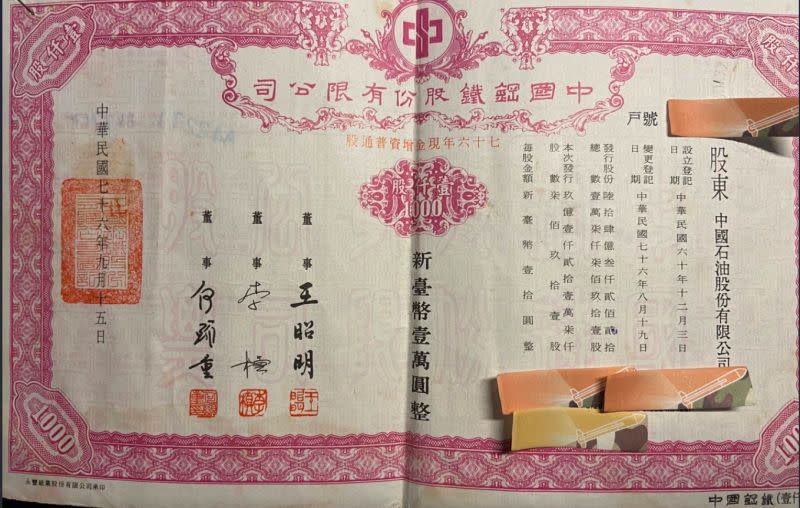 壹仟股
壹仟股
中國鋼鐵股份有限公司
七十六年現金增資普通股
戶號
股東 中國石油股份有限公司
設立登記日期 中華民國六十年十二月三日
變更登記日期 中華民國七十六年八月十九日
發行股份總數 陸拾肆億叁仟貳佰貳拾壹萬柒仟柒佰玖拾壹股
本次發行股數 玖億壹仟貳拾壹萬柒仟柒佰玖拾壹股
每股金額 新臺幣壹拾圓整
壹仟股
1000
新臺幣壹萬圓整
董事 王昭明
董事 李
董事
中華民國七十六年九月十五日
1000
永豐紙業股份有限公司承印
中國鋼鐵(壹仟